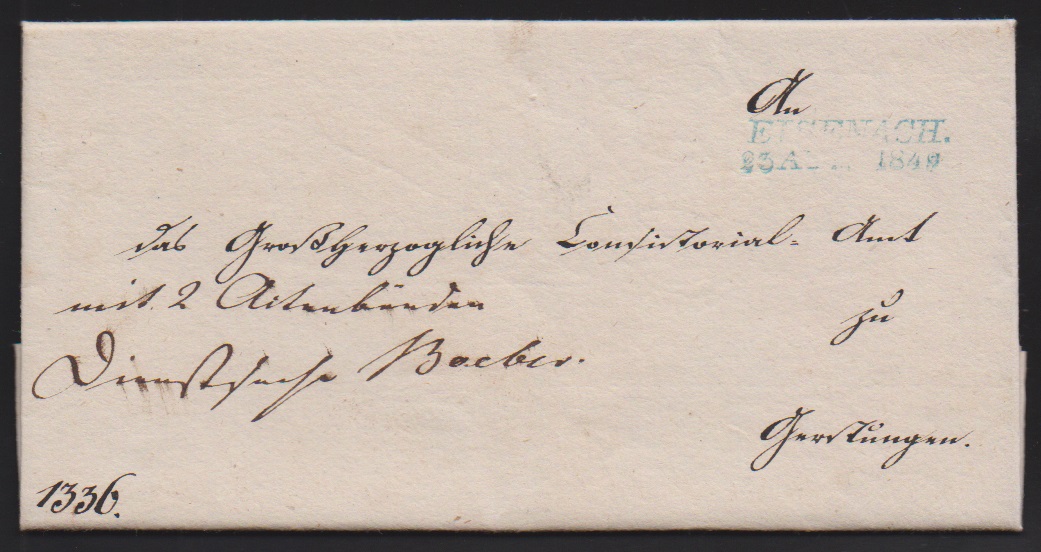 An
EISENACH.
23 A 1849
das Großherzogliche Consistorial- Amt
mit 2 Aktenbänden
zu
Dienstsache
Gerstungen.
1336.